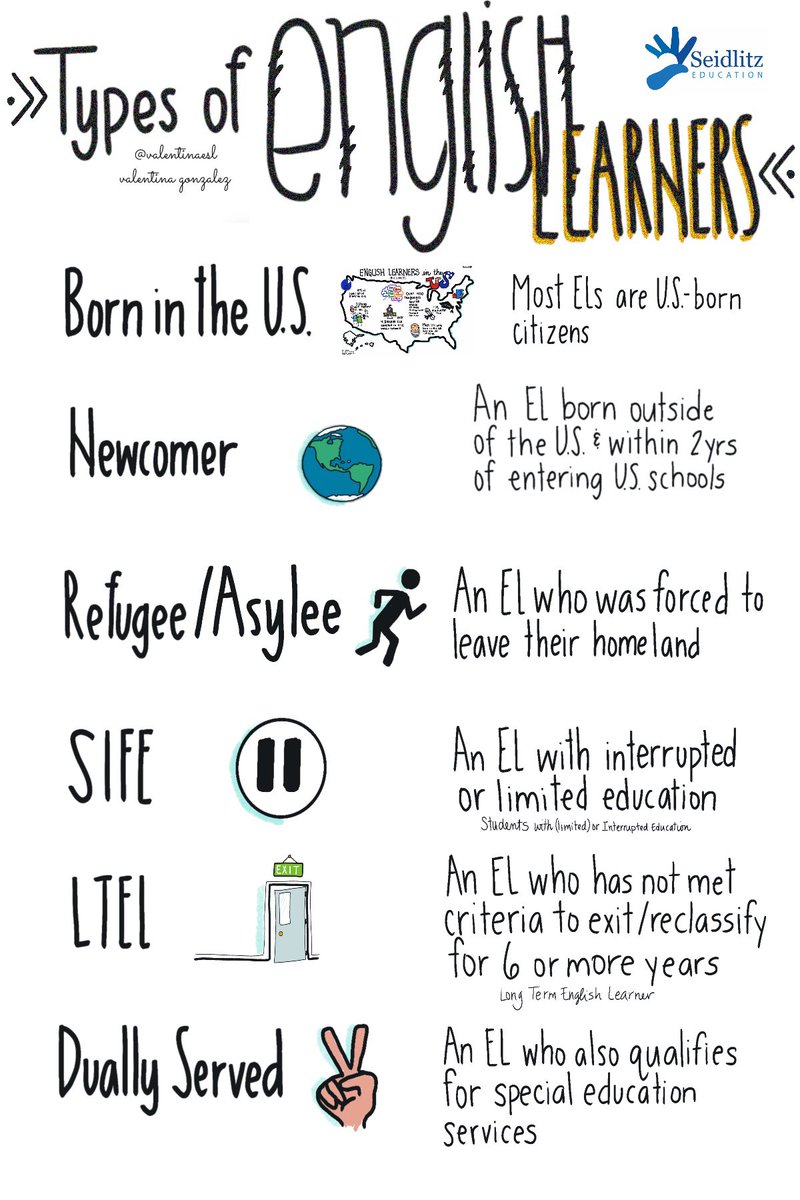 Types of english
LEARNERS
@valentinaesl
valentina gonzalez
Seidlitz
EDUCATION
Born in the U.S.
ENGLISH LEARNERS in the
U.S.
Most Els are U.S.-born
citizens
Newcomer
An El born outside
of the U.S. & within 2yrs
of entering U.S. schools
Refugee/Asylee
An El who was forced to
leave their homeland
SIFE
An EL with interrupted
or limited education
Students with (limited) or Interrupted Education
LTEL
EXIT
An EL who has not met
criteria to exit/reclassify
for 6 or more years
Long Term English Learner
Dually Served
An EL who also qualifies
for special education
services